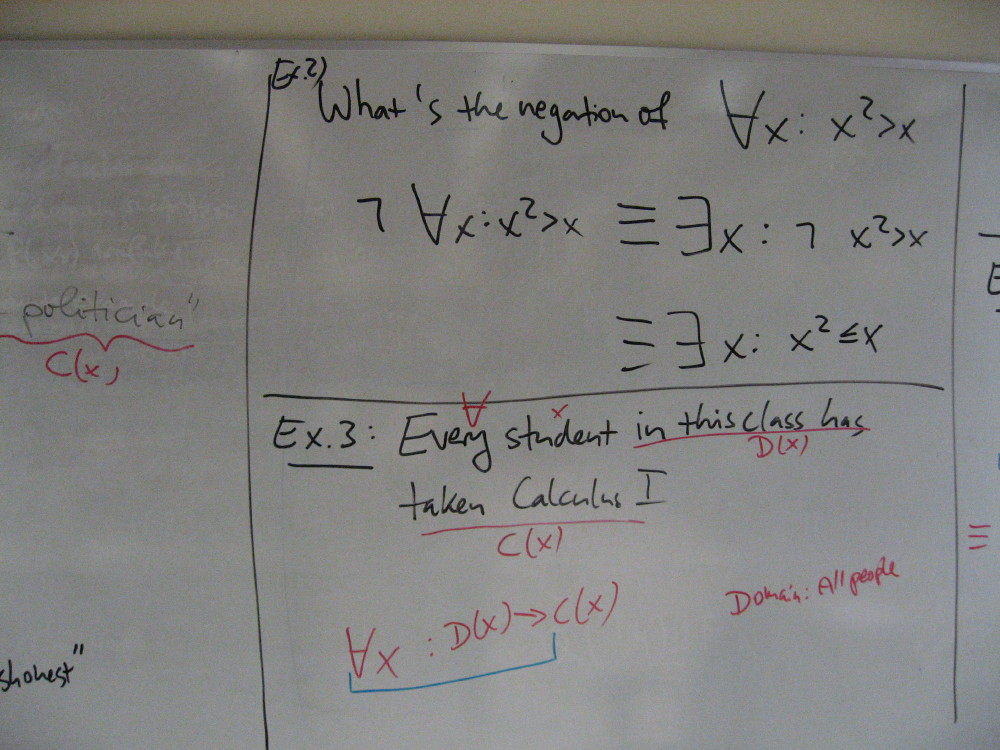 politician"
C(x)
shonest"
Ex.2)
What's the negation of ∀x: x²>x
¬ ∀x: x²>x ≡ ∃x: ¬ x²>x
≡ ∃x: x²≤x
Ex.3: Every student in this class has
∀ x D(x)
taken Calculus I
C(x)
Domain: All people
∀x : D(x)→C(x)
≡